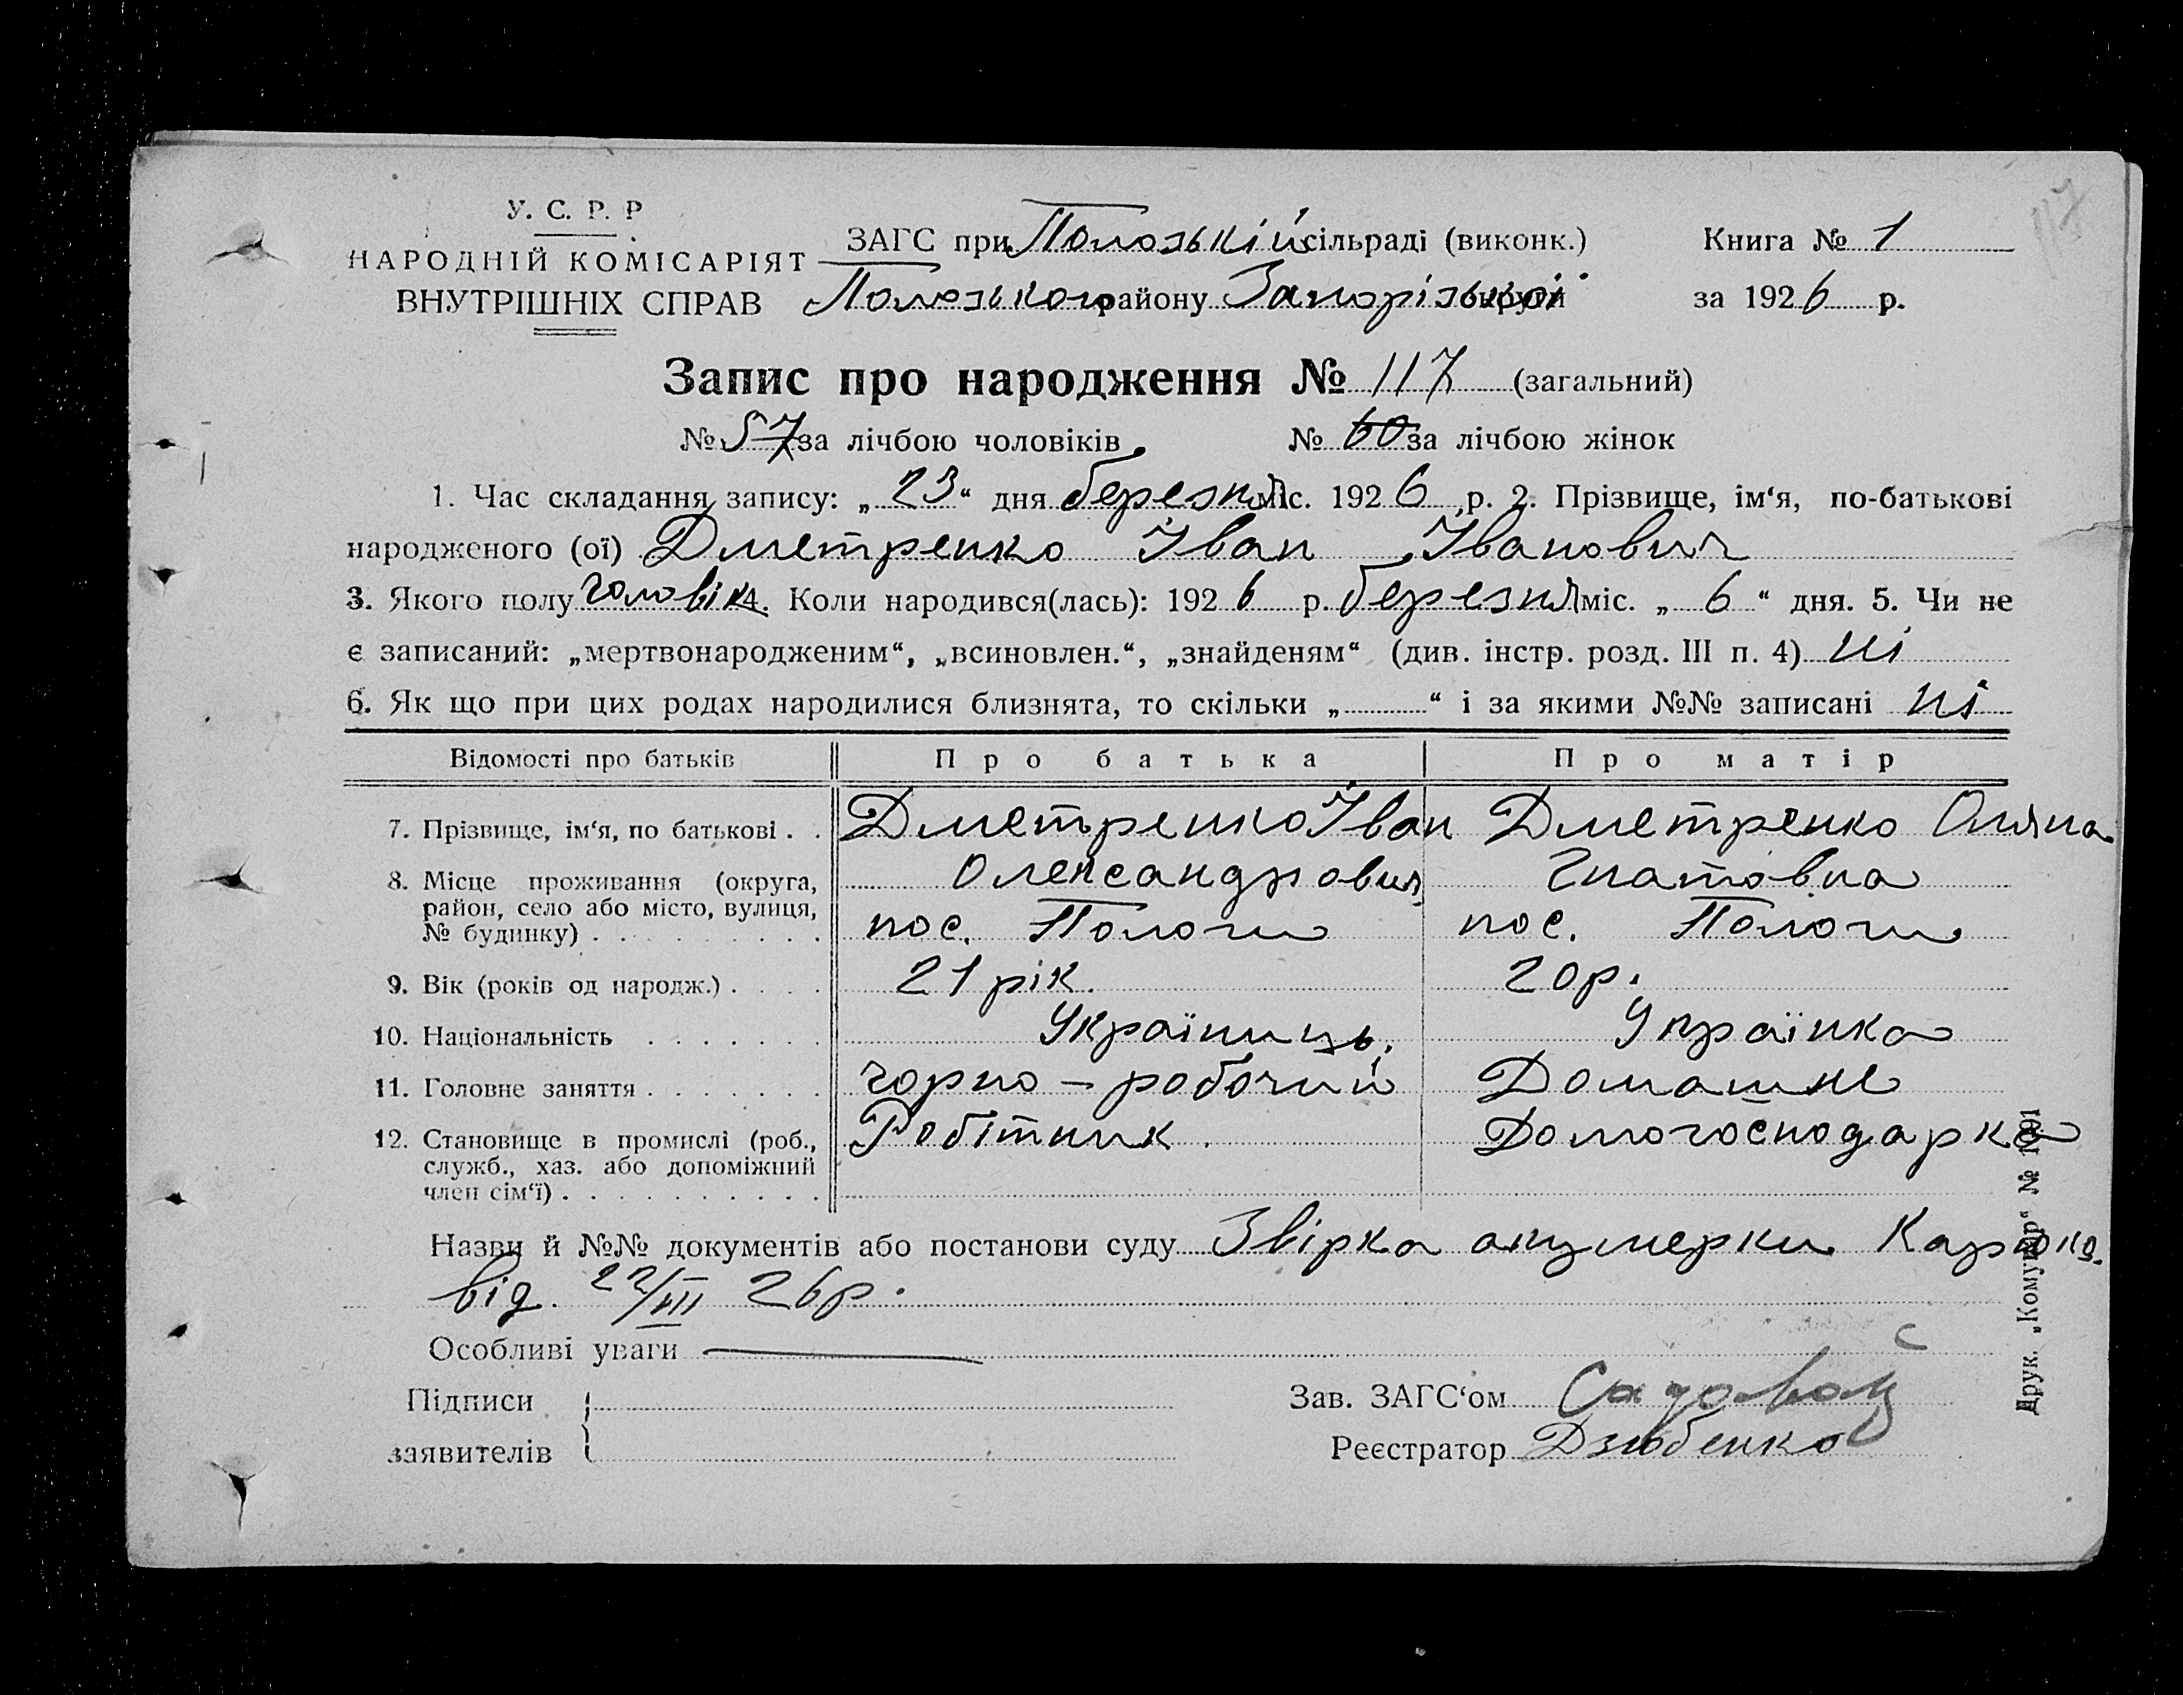 117
У. С. Р. Р
НАРОДНІЙ КОМІСАРІЯТ
ВНУТРІШНІХ СПРАВ
ЗАГС при Полозькій сільраді (виконк.)
Полозького району Запорізької округи
Книга № 1
за 1926 р.
Запис про народження № 117 (загальний)
№ 57 за лічбою чоловіків № 60 за лічбою жінок
1. Час складання запису: „ 23 “ дня березня міс. 1926 р. 2. Прізвище, ім‘я, по-батькові
народженого (ої) Дметренко Іван Іванович
3. Якого полу чоловік 4. Коли народився(лась): 1926 р. березня міс. „ 6 “ дня. 5. Чи не
є записаний: „мертвонародженим“, „всиновлен.“, „знайденям“ (див. інстр. розд. III п. 4) ні
6. Як що при цих родах народилися близнята, то скільки „ “ і за якими №№ записані ні
Відомості про батьків Про батька Про матір
7. Прізвище, ім‘я, по батькові . . Дметренко Іван Дметренко Оляна
Олександрович Гнатовна
8. Місце проживання (округа,
район, село або місто, вулиця,
№ будинку) . . . . . . . . . пос. Пологи пос. Пологи
9. Вік (років од народж.) . . . . 21 рік. 20 р.
10. Національність . . . . . . . Українць. Українка
11. Головне заняття . . . . . . . чорно-робочий Домашнє
12. Становище в промислі (роб.,
служб., хаз. або допоміжний
член сім‘ї) . . . . . . . . . . Робітник. Домогосподарка
Назви й №№ документів або постанови суду Звірка акушерки
від 22/III 26 р.
Особливі уваги
Підписи
заявителів
Зав. ЗАГС‘ом Садовой
Реєстратор Дзюбенко
Друк. „Комунар“ № 1